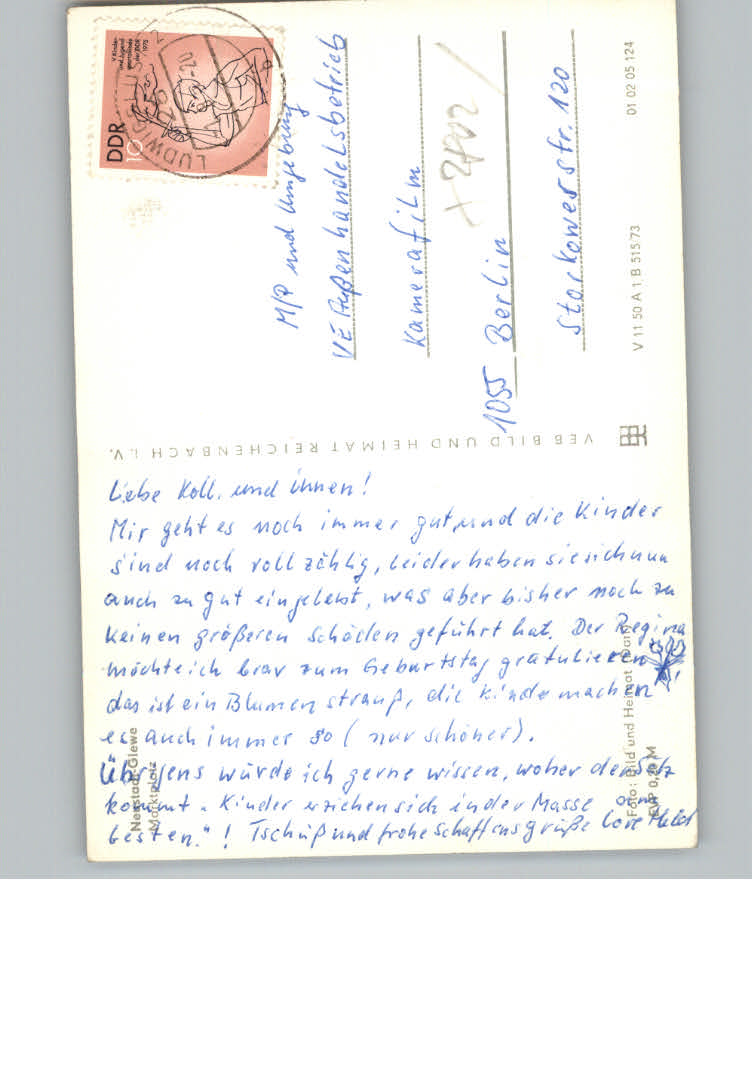 Liebe Koll. und innen!
Mir geht es noch immer gut, und die Kinder
sind noch vollzählig, leider haben sie sich nun
auch zu gut eingelebt, was aber bisher noch zu
keinen größeren Schäden geführt hat. Der Regina
möchte ich brav zum Geburtstag gratulieren
das ist ein Blumenstrauß, die Kinder machen
es auch immer so (nur schöner).
Übrigens würde ich gerne wissen, woher der Satz
kommt "Kinder erziehen sich in der Masse am
besten."! Tschüß und frohe Schaffensgrüße
Neustadt-Glewe
Marktplatz
Foto: Bild und Heimat
EVP 0,20 M
VEB BILD UND HEIMAT REICHENBACH I. V.
V Kinder-
und Jugend-
spartakiade
der DDR
1975
DDR
10
LUDWIGSLUST
M/P und Umgebung
VE Außenhandelsbetrieb
Kamerafilm
1055 Berlin
Storkower Str. 120
V 11 50 A 1 B 515/73
01 02 05 124